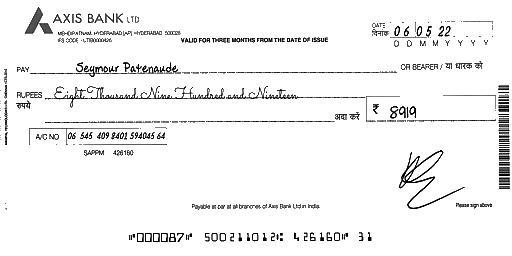 AXIS BANK LTD
MEHDIPATNAM, HYDERABAD [AP] HYDERABAD 500028
IFS CODE : UTIB0000426
VALID FOR THREE MONTHS FROM THE DATE OF ISSUE
DATE
दिनांक 06 05 22
D D M M Y Y Y Y
PAY Seymour Patenaude OR BEARER / या धारक को
RUPEES Eight Thousand Nine Hundred and Nineteen
रुपये अदा करें ₹ 8919
A/C NO 06 545 409 8401 594045 64
SAPPM 426160
Payable at par at all branches of Axis Bank Ltd in India.
Please sign above
"000087" 500211012: 426160" 31